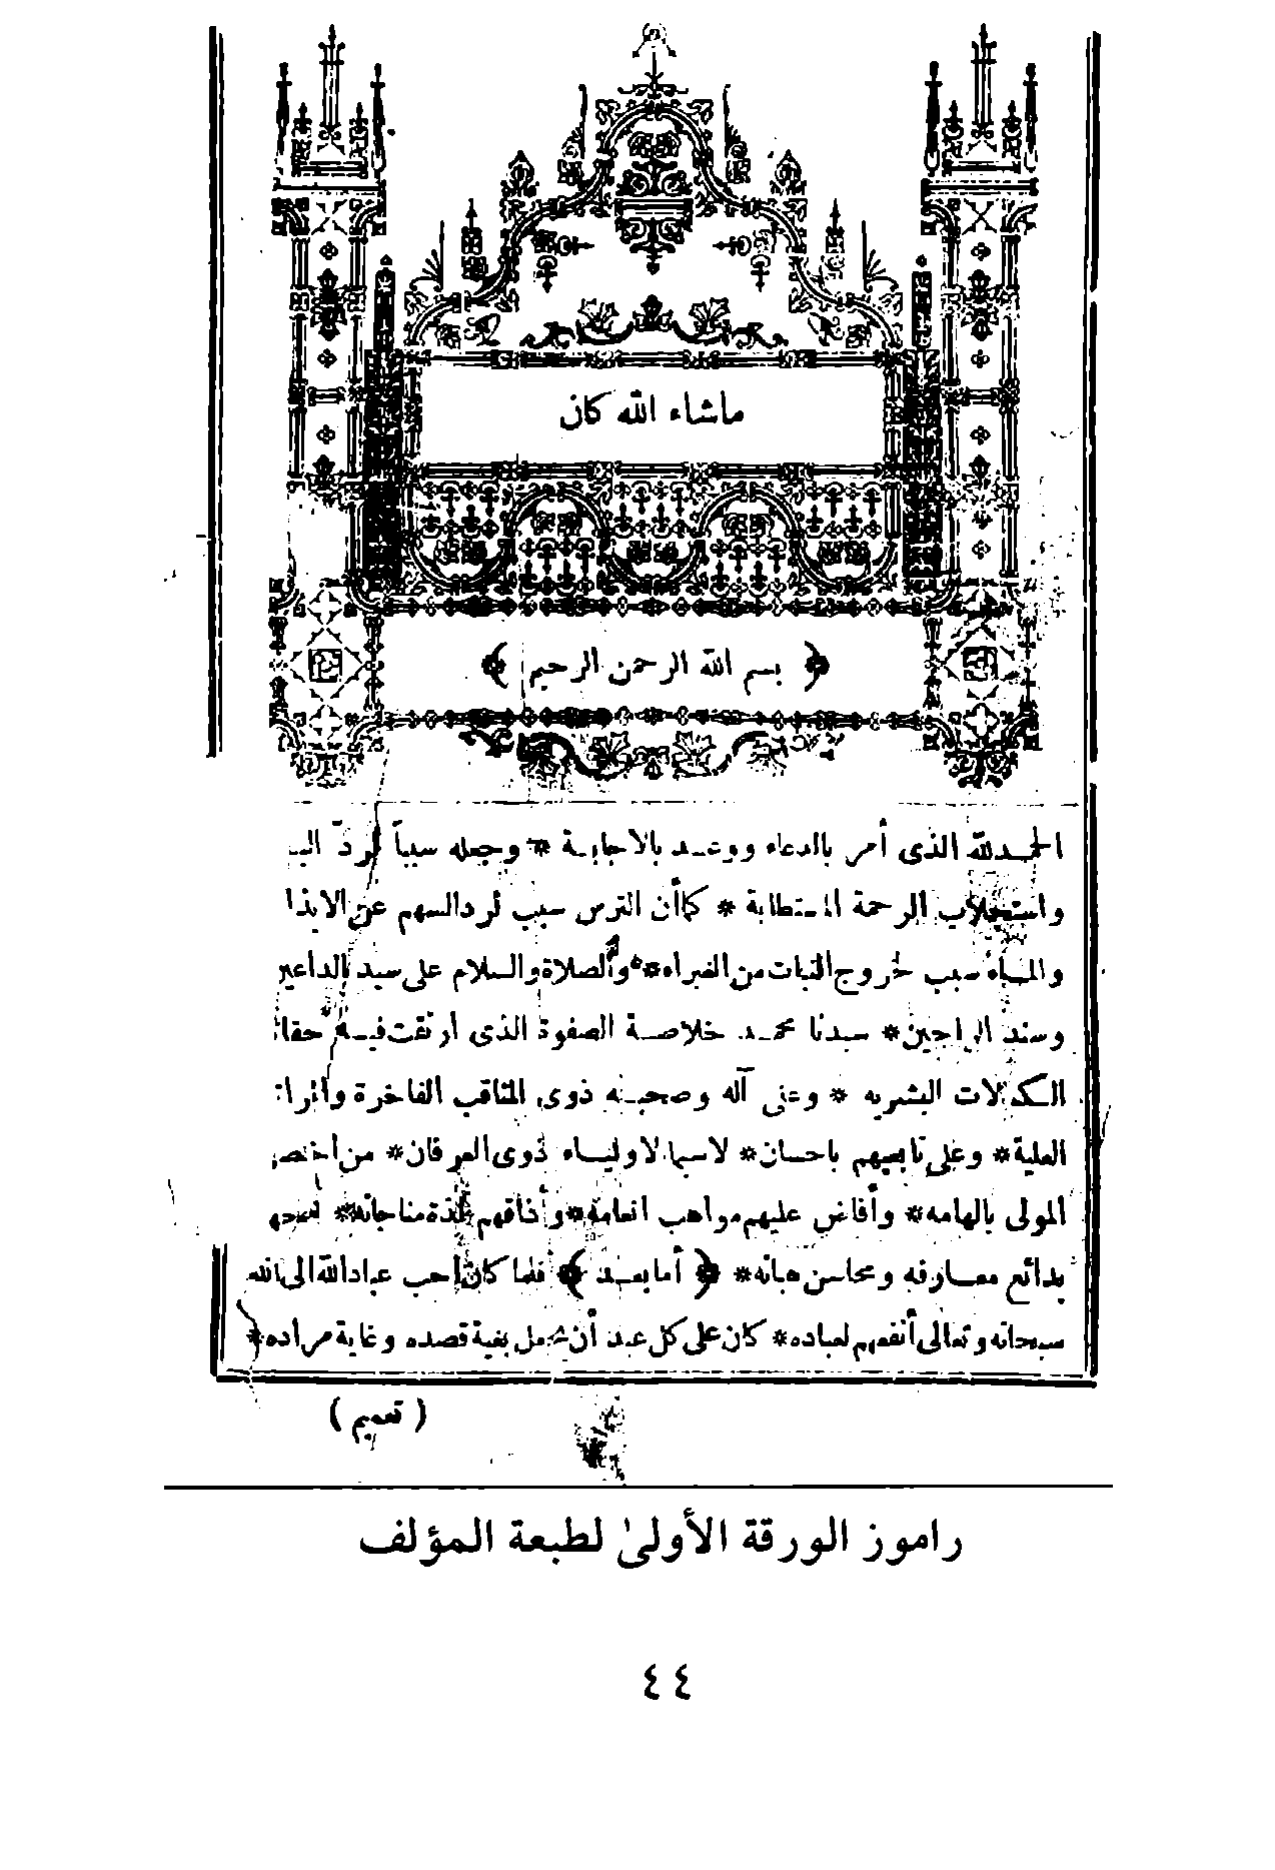 ماشاء الله كان
﴿ بسم الله الرحمن الرحيم ﴾
الحمد لله الذى أمر بالدعاء ووعد بالاجابة * وجعله سبباً لردّ
واستجلاب الرحمة المستطابة * كما أن الترس سبب لرد السهم عن
والماء سبب لخروج النبات من الغبراء * والصلاة والسلام على سيد الداعين
وسند الراجين * سيدنا محمد خلاصة الصفوة الذى ارتقت فيه
الكمالات البشريه * وعلى آله وصحبه ذوى المناقب الفاخرة
العلية * وعلى تابعيهم باحسان * لاسيما الاولياء ذوى العرفان * من
المولى بالهامه * وأفاض عليهم مواهب انعامه * وأذاقهم لذة مناجاته *
بدائع معارفه ومحاسن هباته * ﴿ أما بعد ﴾ فلما كان أحب عباد الله الى الله
سبحانه وتعالى أنفعهم لعباده * كان على كل عبد أن يجعل بغية قصده وغاية مراده *
( تعميم )
راموز الورقة الأولىٰ لطبعة المؤلف
٤٤